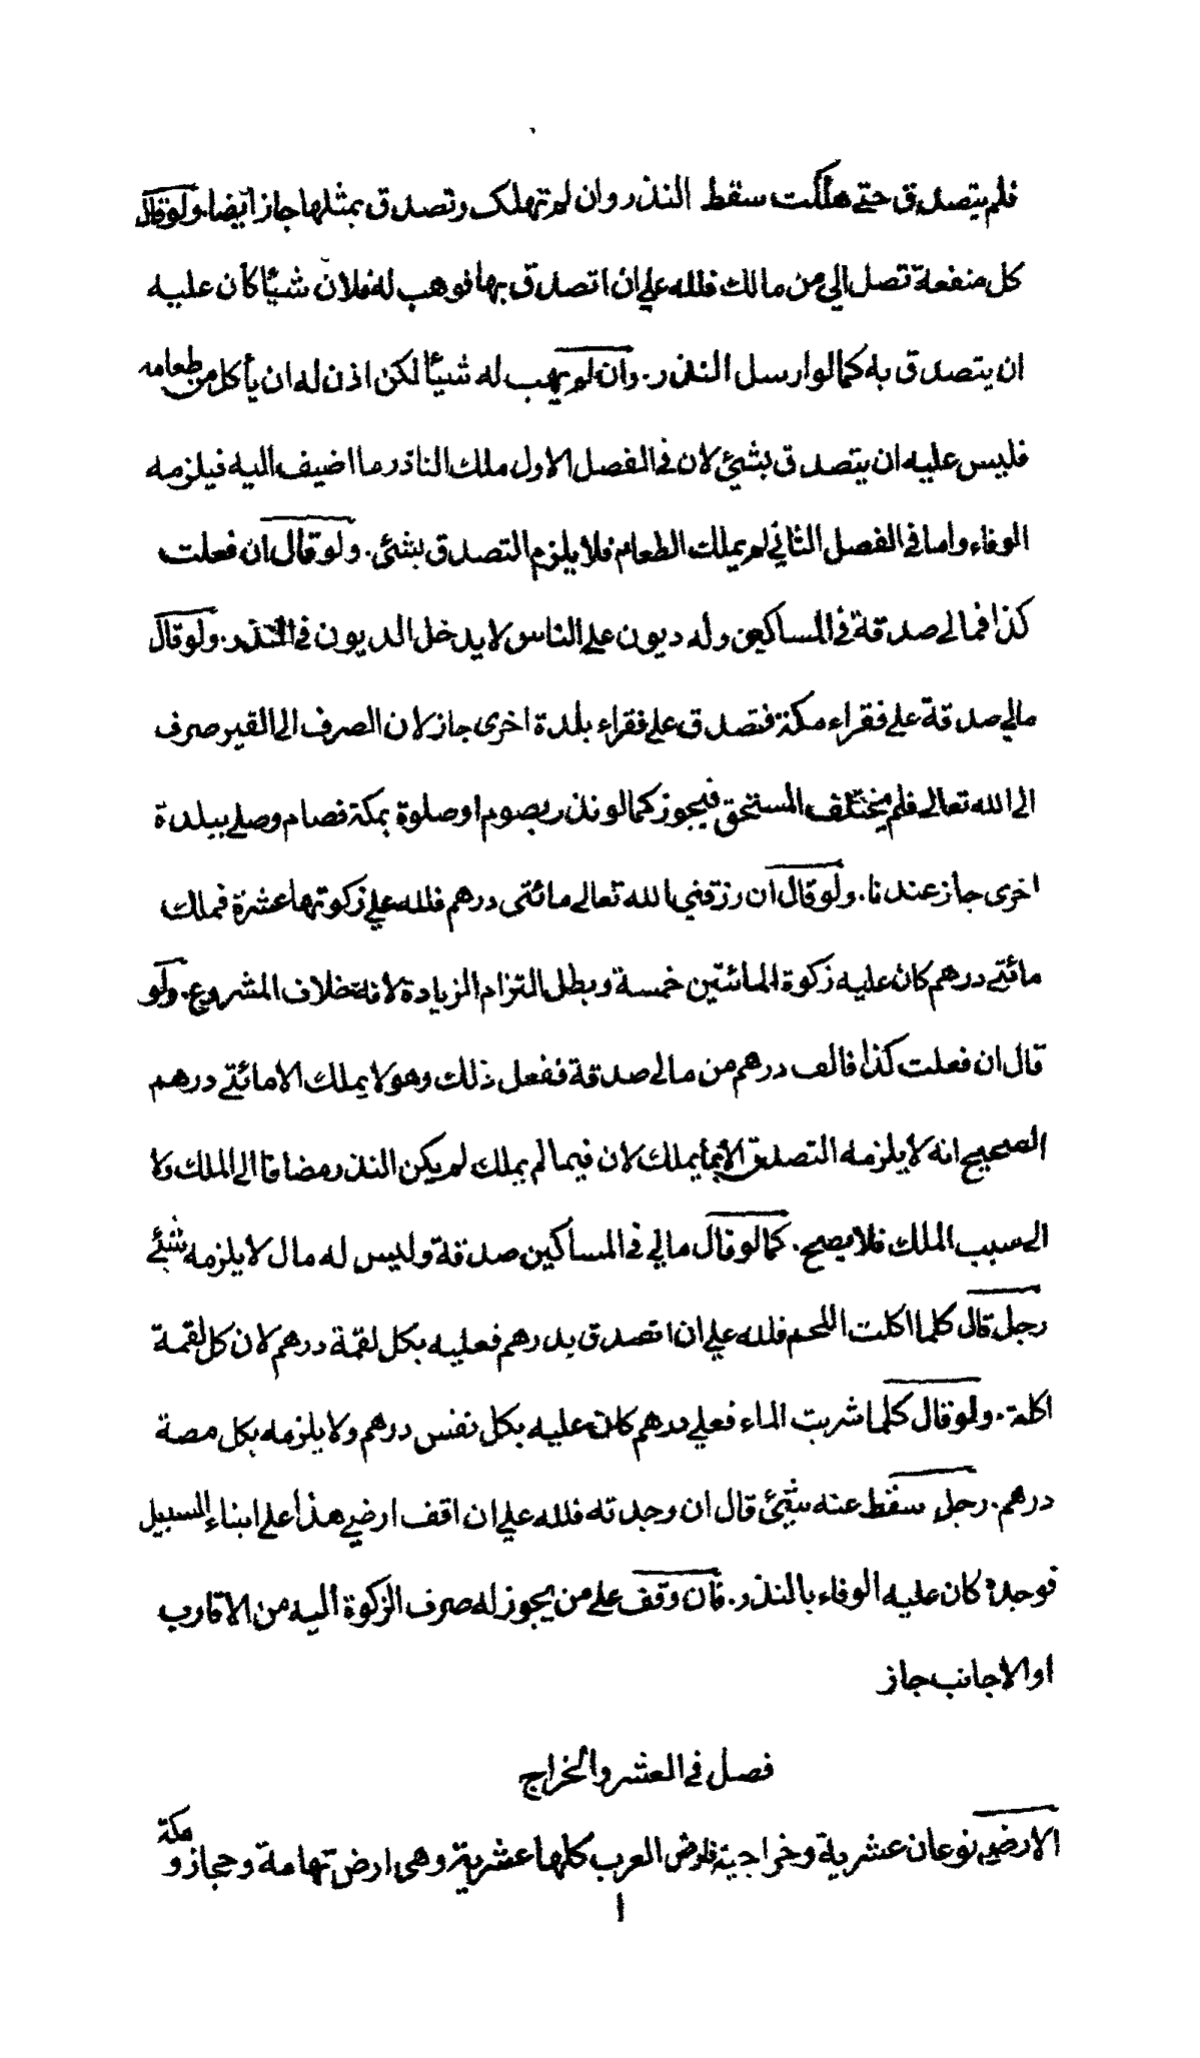 فلم يتصدق حتى هلكت سقط النذر وان لم تهلك وتصدق بمثلها جاز ايضا. ولو قال
كل منفعة تصل الي من مالك فلله علي ان اتصدق بها فوهب له فلان شيئا كان عليه
ان يتصدق به كما لو ارسل النذر. وان لم يهب له شيئا لكن اذن له ان يأكل من طعامه
فليس عليه ان يتصدق بشئ لان في الفصل الاول ملك الناذر ما اضيف اليه فيلزمه
الوفاء واما في الفصل الثاني لم يملك الطعام فلا يلزم التصدق بشئ. ولو قال ان فعلت
كذا فمالي صدقة في المساكين وله ديون على الناس لا يدخل الديون في النذر. ولو قال
مالي صدقة على فقراء مكة فتصدق على فقراء بلدة اخرى جاز لان الصرف الى الفقير صرف
الى الله تعالى فلم يختلف المستحق فيجوز كما لو نذر بصوم او صلوة بمكة فصام وصلى ببلدة
اخرى جاز عندنا. ولو قال ان رزقني الله تعالى مائتى درهم فلله علي زكوتها عشرة فملك
مائتى درهم كان عليه زكوة المائتين خمسة وبطل التزام الزيادة لانه خلاف المشروع. ولو
قال ان فعلت كذا فالف درهم من مالي صدقة ففعل ذلك وهو لا يملك الا مائتى درهم
الصحيح انه لا يلزمه التصدق الا بما يملك لان فيما لم يملك لم يكن النذر مضافا الى الملك ولا
الى سبب الملك فلا يصح. كما لو قال مالي في المساكين صدقة وليس له مال لا يلزمه شئ
رجل قال كلما اكلت اللحم فلله علي ان اتصدق بدرهم فعليه بكل لقمة درهم لان كل لقمة
اكلة. ولو قال كلما شربت الماء فعلي درهم كان عليه بكل نفس درهم ولا يلزمه بكل مصة
درهم. رجل سقط عنه شئ قال ان وجدته فلله علي ان اقف ارضي هذا على ابناء السبيل
فوجده كان عليه الوفاء بالنذر. فان وقف على من يجوز له صرف الزكوة اليه من الاقارب
او الاجانب جاز
فصل في العشر والخراج
الارضي نوعان عشرية وخراجية فارض العرب كلها عشرية وهى ارض تهامة وحجاز و مكة
ا